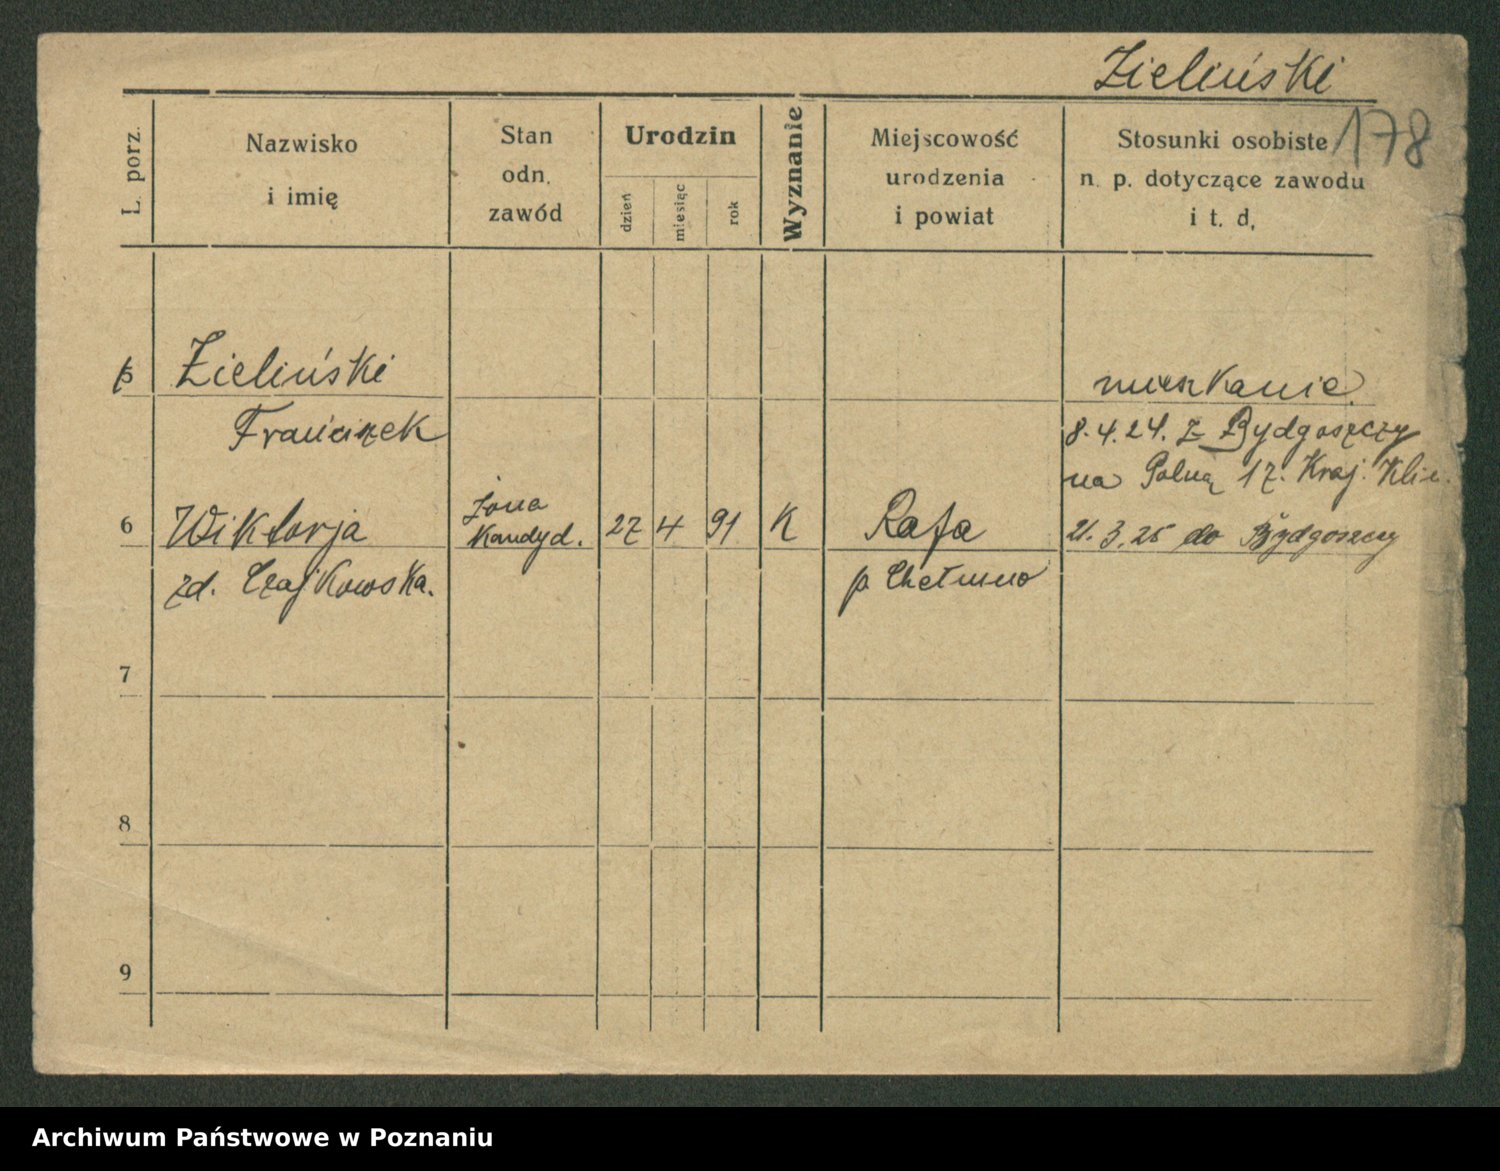 Zieliński
178
L. porz.
Nazwisko
i imię
Stan
odn.
zawód
Urodzin
dzień
miesiąc
rok
Wyznanie
Miejscowość
urodzenia
i powiat
Stosunki osobiste
n. p. dotyczące zawodu
i t. d.
5 Zieliński mieszkanie
Franciszek 8.4.24. z Bydgoszczy
na Polną 17. Kraj.
6 Wiktorja żona Kandyd. 27 4 91 K Rafa 21.3.25 do Bydgoszczy
zd. Czajkowska. p. Chełmno
7
8
9
Archiwum Państwowe w Poznaniu